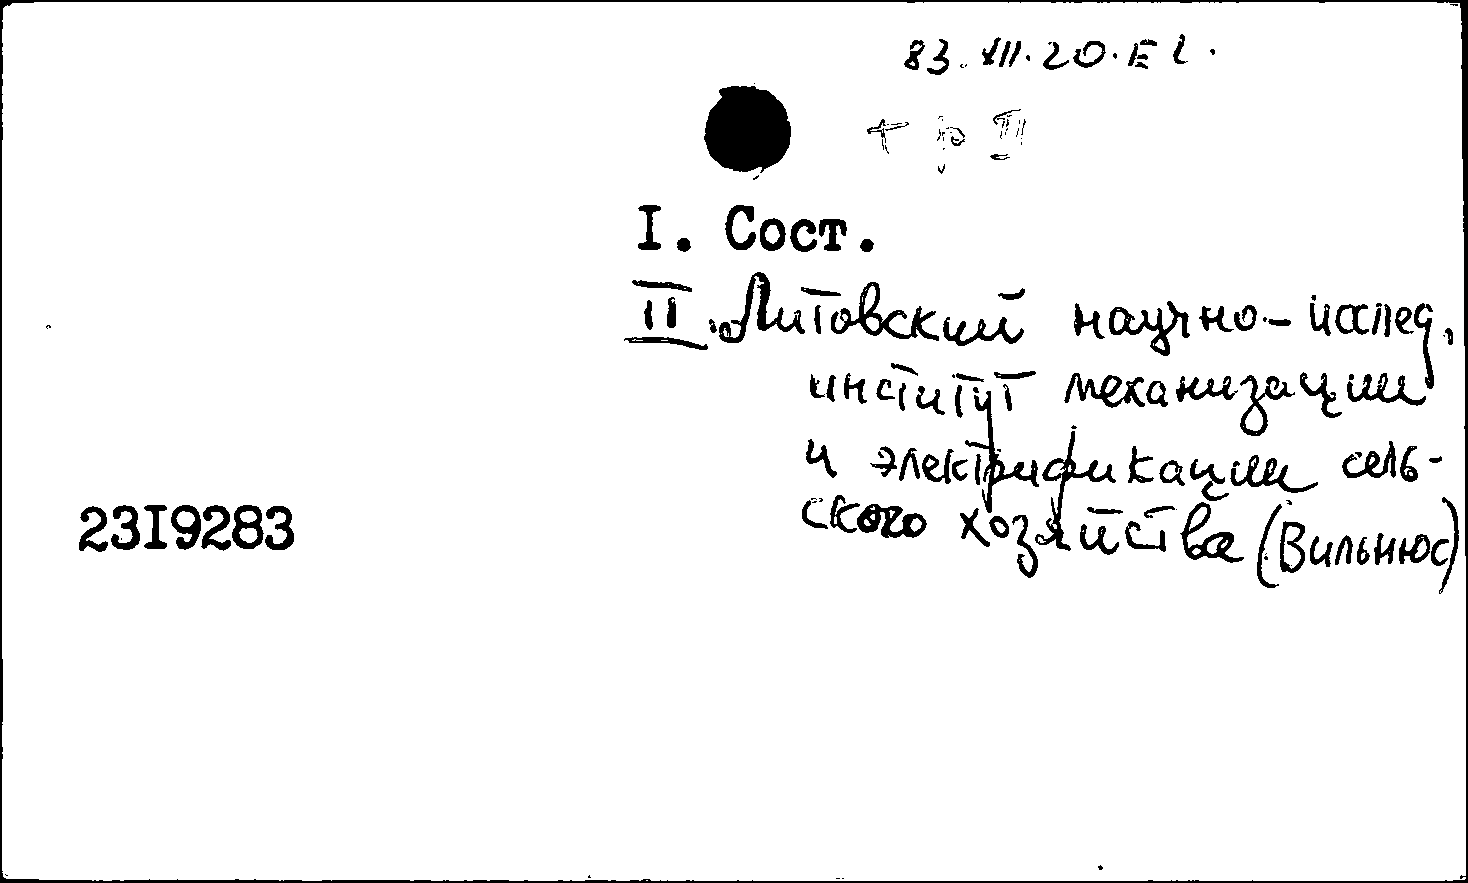 83.XII.20.Е2.
+ р II
I. Сост.
II. Литовский научно-исслед.
институт механизации
и электрификации сель-
ского хозяйства (Вильнюс)
23I9283